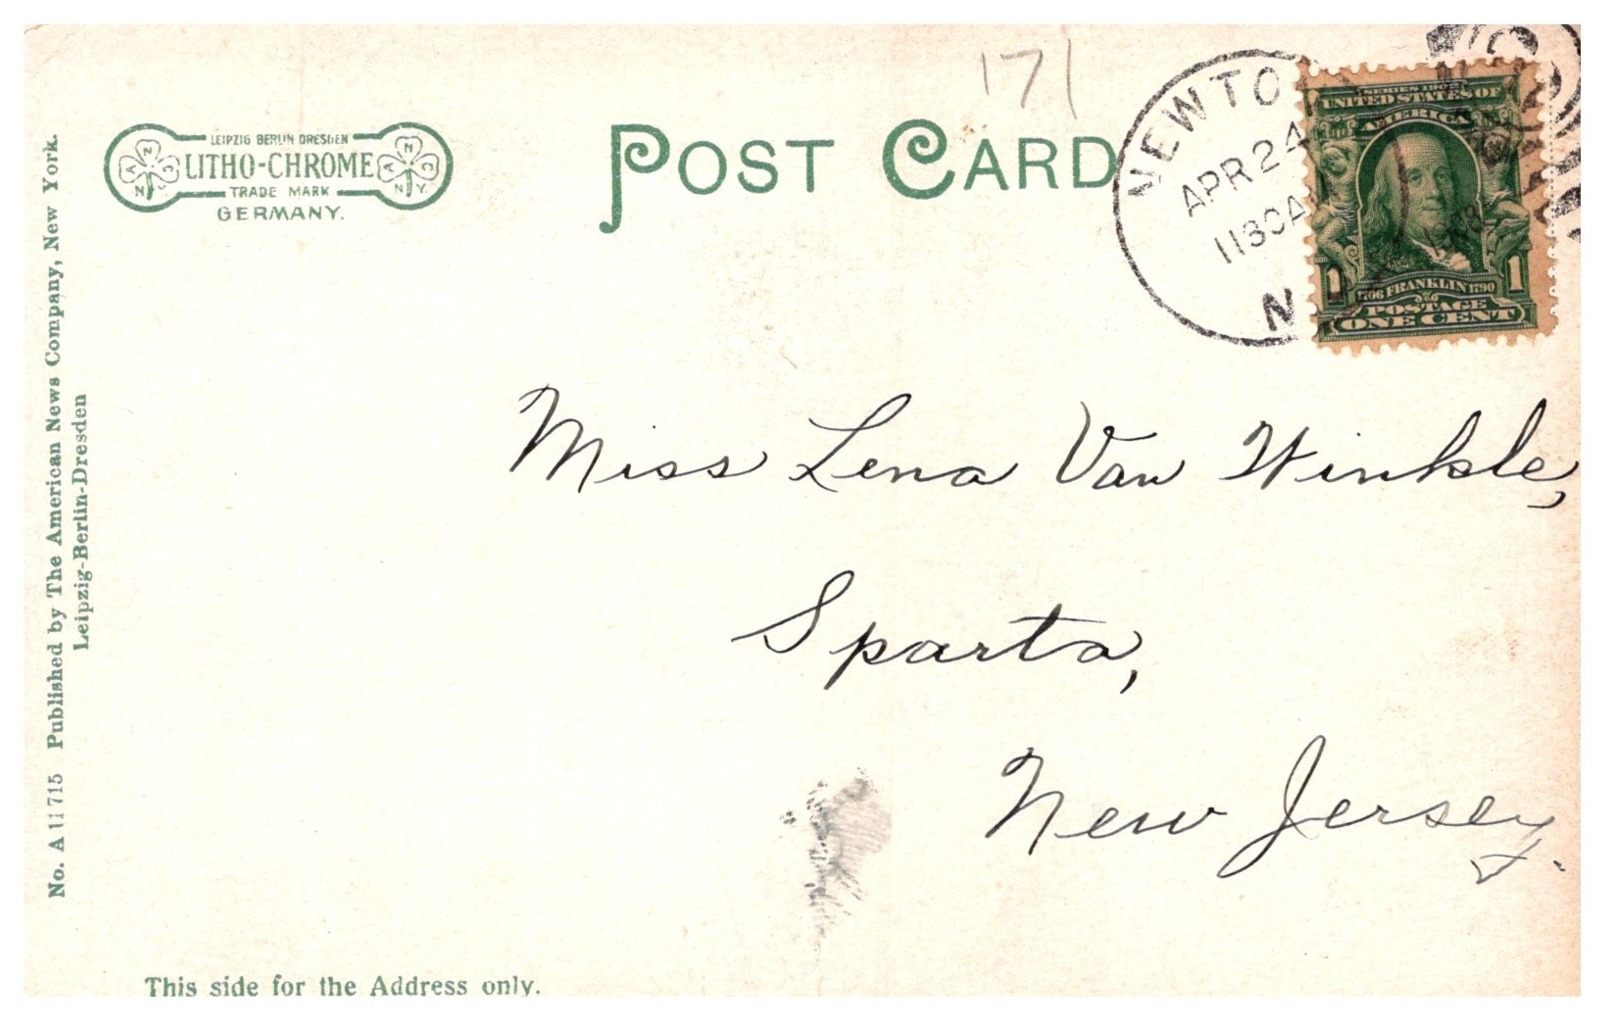 171
LEIPZIG BERLIN DRESDEN
LITHO-CHROME
TRADE MARK
GERMANY.
POST CARD
NEWTO
APR 24
1130A
N
SERIES 1902
UNITED STATES OF
AMERICA
1706 FRANKLIN 1790
1 1
POSTAGE
ONE CENT
Miss Lena Van Winkle,
Sparta,
New Jersey.
No. A 11715 Published by The American News Company, New York.
Leipzig-Berlin-Dresden
This side for the Address only.